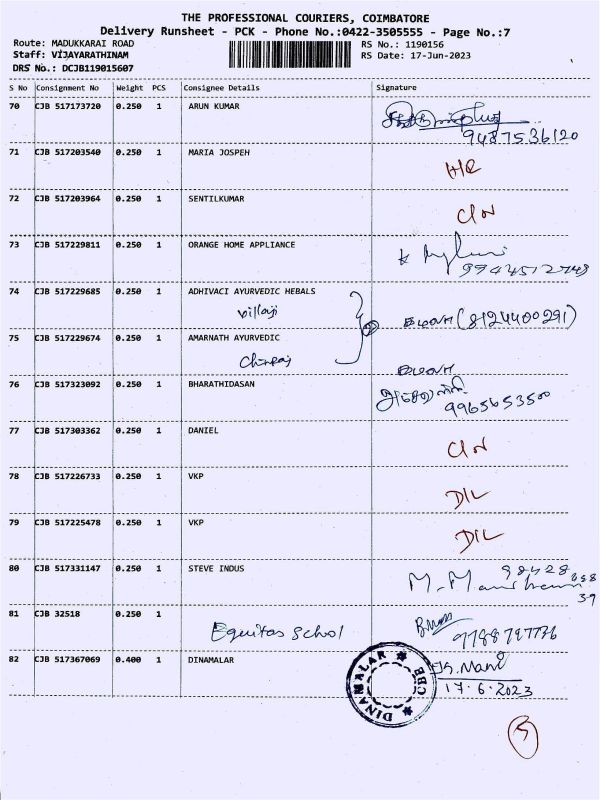 THE PROFESSIONAL COURIERS, COIMBATORE
Delivery Runsheet - PCK - Phone No.:0422-3505555 - Page No.:7
Route: MADUKKARAI ROAD RS No.: 1190156
Staff: VIJAYARATHINAM RS Date: 17-Jun-2023
DRS No.: DCJB119015607
S No Consignment No Weight PCS Consignee Details Signature
70 CJB 517173720 0.250 1 ARUN KUMAR
9487536120
71 CJB 517203540 0.250 1 MARIA JOSPEH
72 CJB 517203964 0.250 1 SENTILKUMAR
73 CJB 517229811 0.250 1 ORANGE HOME APPLIANCE
74 CJB 517229685 0.250 1 ADHIVACI AYURVEDIC HEBALS
Villaji (8124400291)
75 CJB 517229674 0.250 1 AMARNATH AYURVEDIC
76 CJB 517323092 0.250 1 BHARATHIDASAN
9965653500
77 CJB 517303362 0.250 1 DANIEL
78 CJB 517226733 0.250 1 VKP
D/L
79 CJB 517225478 0.250 1 VKP
D/L
80 CJB 517331147 0.250 1 STEVE INDUS
98428
81 CJB 32518 0.250 1
Equitas School
82 CJB 517367069 0.400 1 DINAMALAR
S. Mani
17.6.2023
DINAMALAR CBE